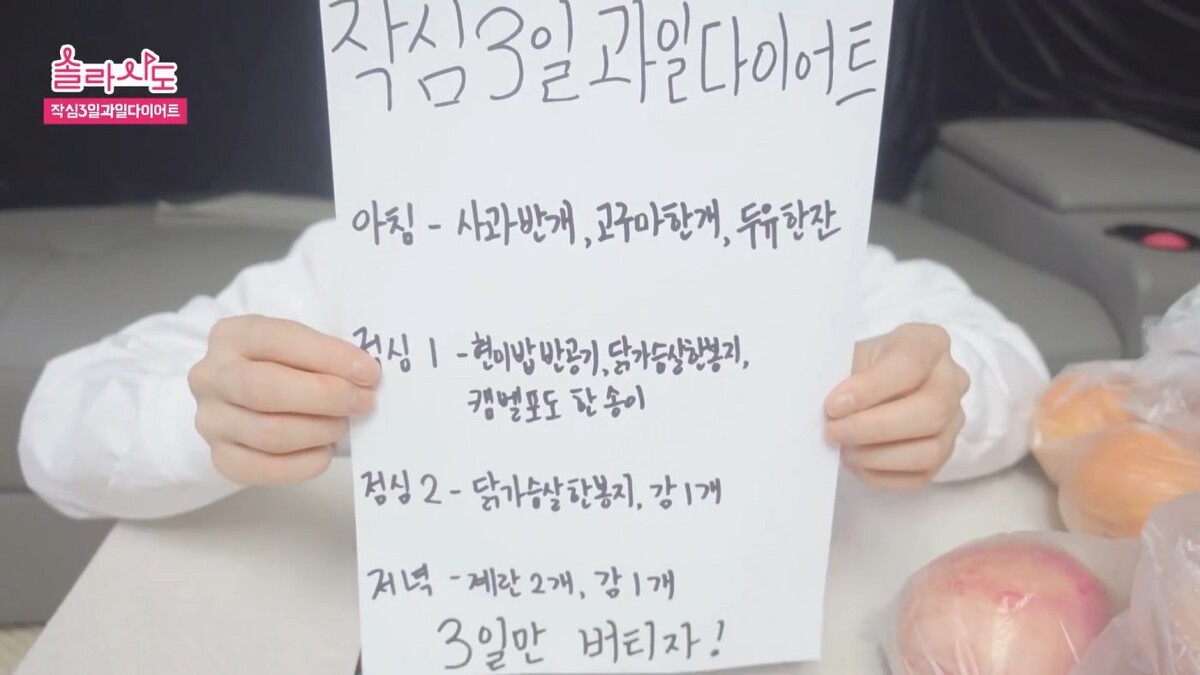 솔라시도
작심3일과일다이어트
작심3일 과일다이어트
아침 - 사과반개, 고구마한개, 두유한잔
점심 1 - 현미밥 반공기, 닭가슴살한봉지,
캠벨포도 한 송이
점심 2 - 닭가슴살한봉지, 감1개
저녁 - 계란2개, 감1개
3일만 버티자!